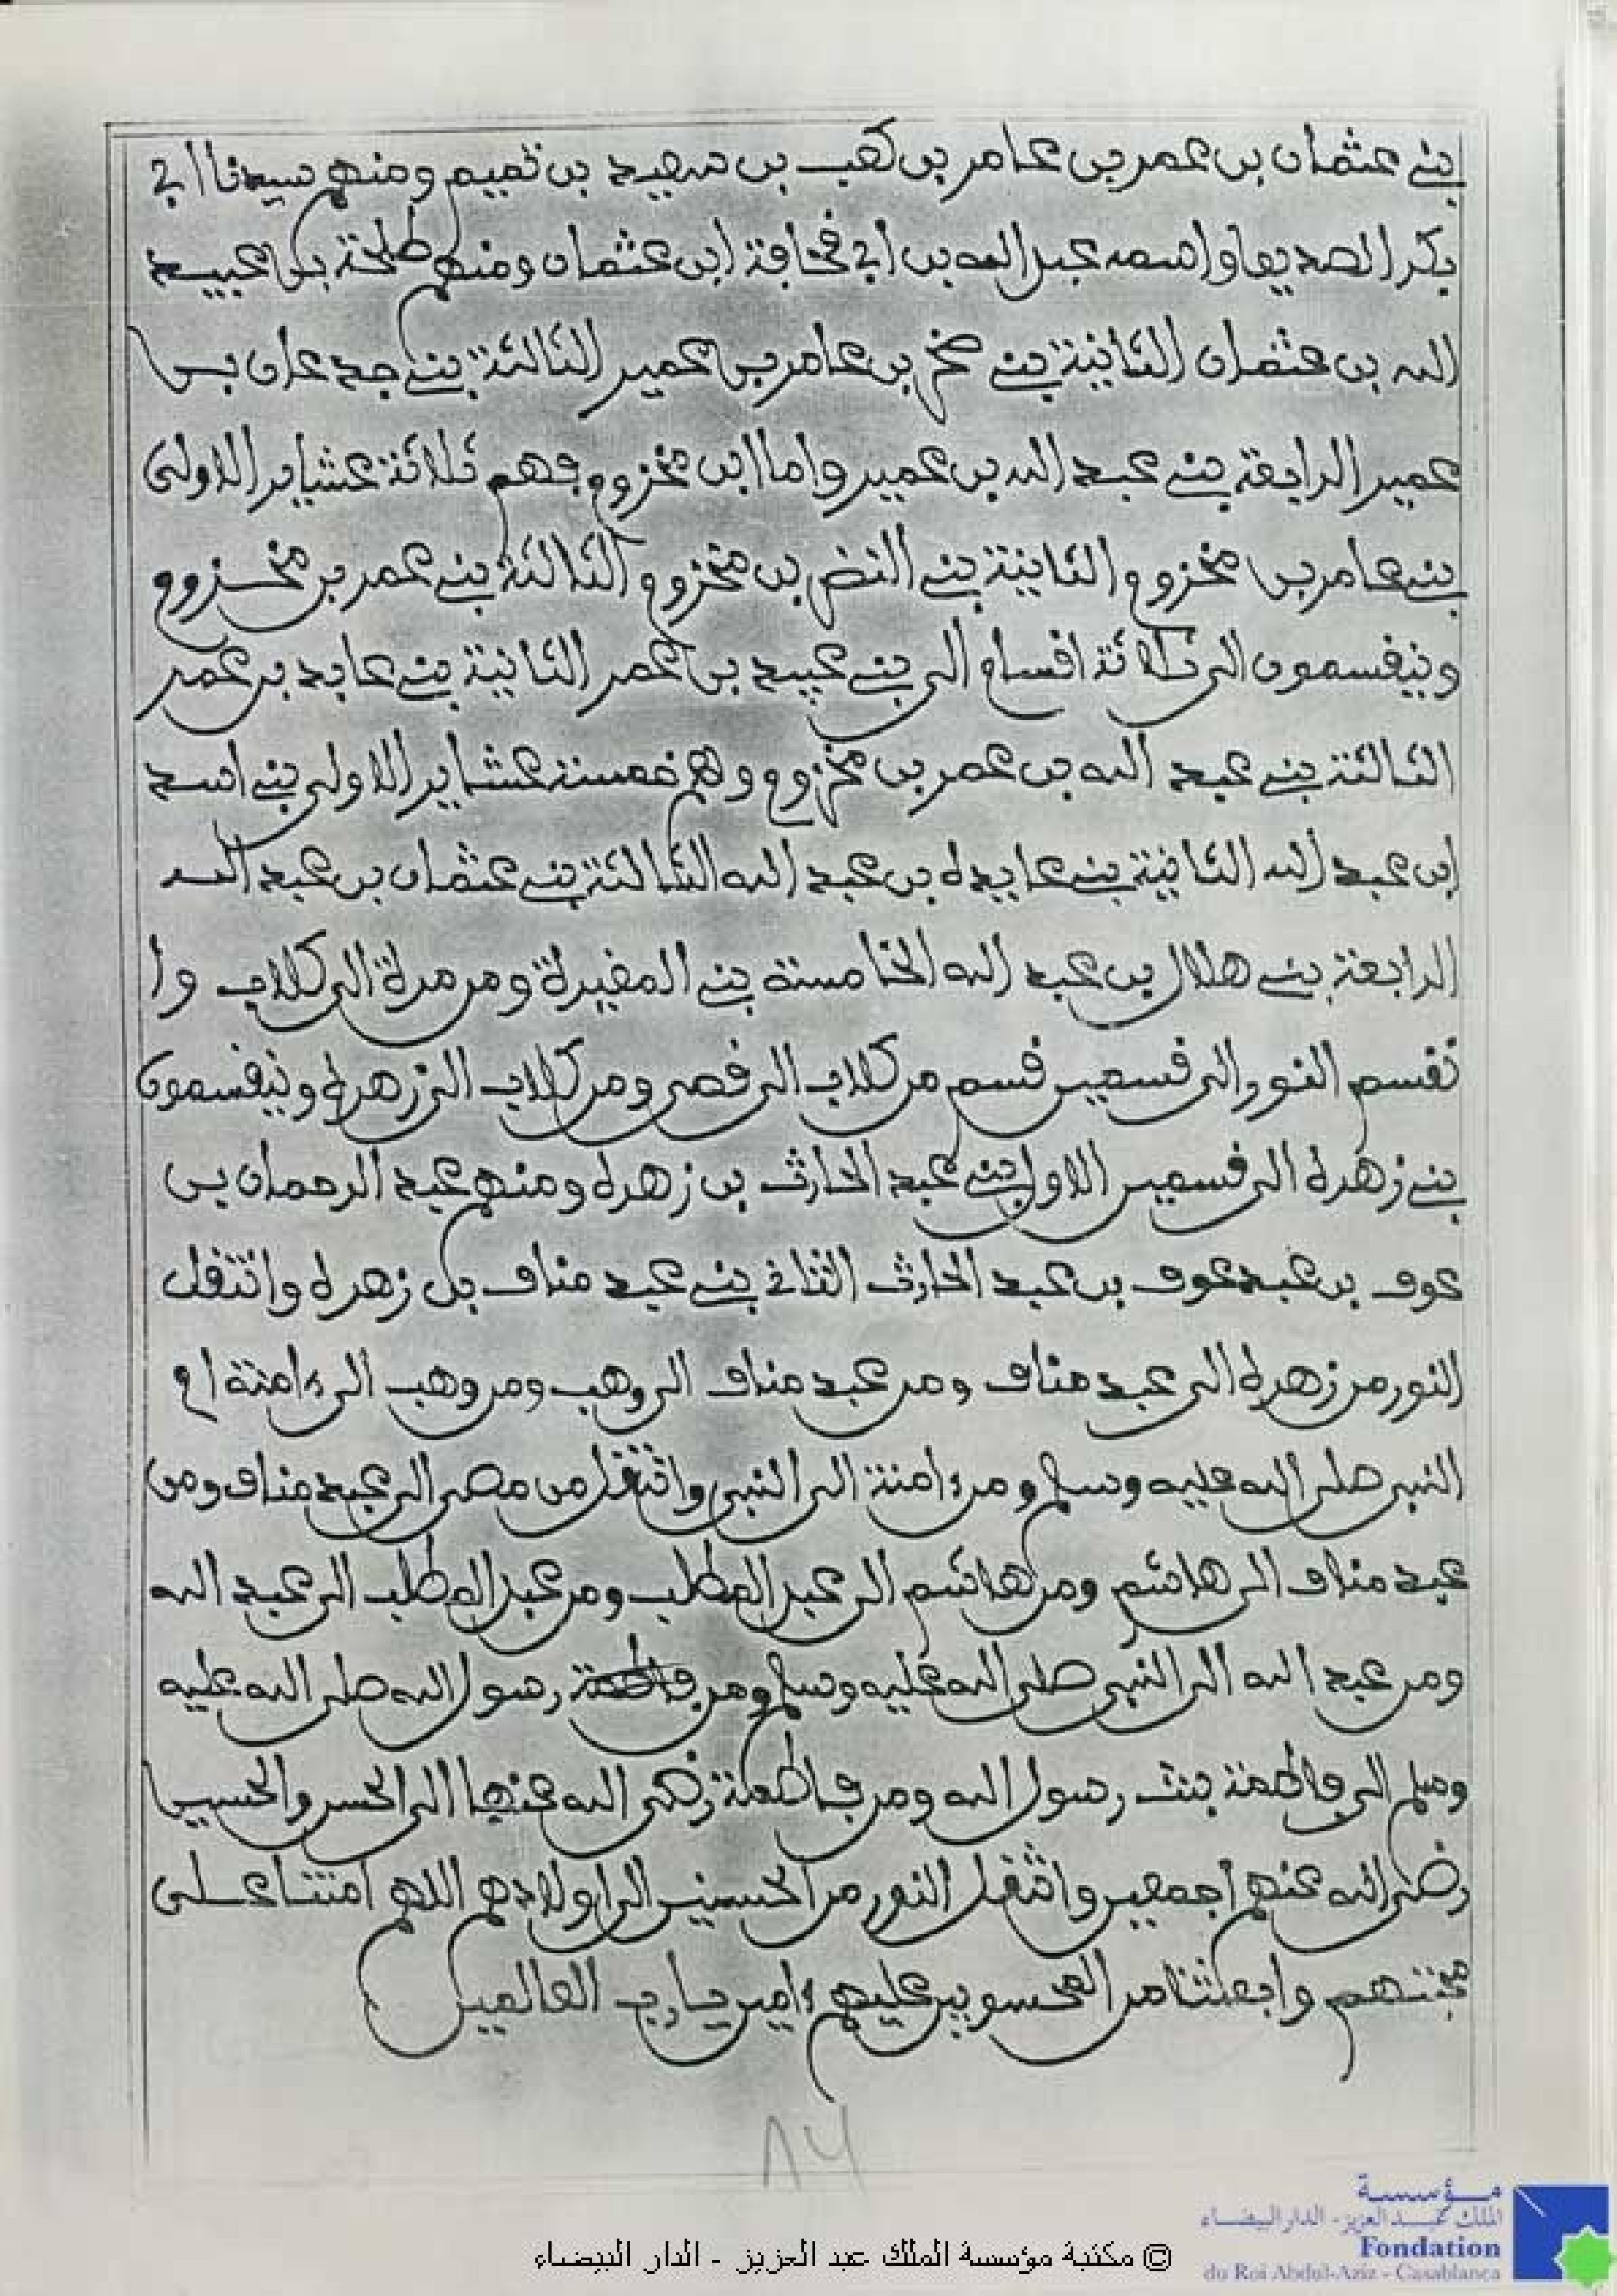 بني عثمان بن عمر بن عامر بن كعب بن سعيد بن تميم ومنهم سيدنا ابي
بكر الصديق واسمه عبد الله بن ابي قحافة ابن عثمان ومنهم طلحة بن عبيد
الله بن عثمان الثانية بني صخر بن عامر بن عمير الثالثة بني جدعان بن
عمير الرابعة بني عبد الله بن عمير واما ابن مخزوم فهم ثلاثة عشاير الاولى
بني عامر بن مخزوم والثانية بني النضر بن مخزوم والثالثة بني عمر بن مخزوم
وينقسمون الى ثلاثة اقسام الى بني عبيد بن عمر الثانية بني عابد بن عمر
الثالثة بني عبد الله بن عمر بن مخزوم وهم خمسة عشاير الاولى بني اسد
ابن عبد الله الثانية بني عايدة بن عبد الله الثالثة بني عثمان بن عبد الله
الرابعة بني هلال بن عبد الله الخامسة بني المغيرة ومن مرة الى كلاب وا
نقسم النور الى قسمين قسم من كلاب الى قصي ومن كلاب الى زهرة وينقسمون
بني زهرة الى قسمين الاول بني عبد الحارث بن زهرة ومنهم عبد الرحمان بن
عوف بن عبد عوف بن عبد الحارث الثاني بني عبد مناف بن زهرة وانتقل
النور من زهرة الى عبد مناف ومن عبد مناف الى وهب ومن وهب الى ءامنة ام
النبي صلى الله عليه وسلم ومن ءامنة الى النبي وانتقل من مصي الى عبد مناف ومن
عبد مناف الى هاشم ومن هاشم الى عبد المطلب ومن عبد المطلب الى عبد الله
ومن عبد الله الى النبي صلى الله عليه وسلم ومن فاطمة رسول الله صلى الله عليه
وسلم الى فاطمة بنت رسول الله ومن فاطمة رضي الله عنها الى الحسن والحسين
رضي الله عنهم اجمعين وانتقل النور من الحسنين الى اولادهم اللهم امتنا على
محبتهم واجعلنا من المحسوبين عليهم ءامين يا رب العالمين
٨٧
© مكتبة مؤسسة الملك عبد العزيز - الدار البيضاء
مؤسسة
الملك عبد العزيز - الدار البيضاء
Fondation
du Roi Abdul-Aziz - Casablanca